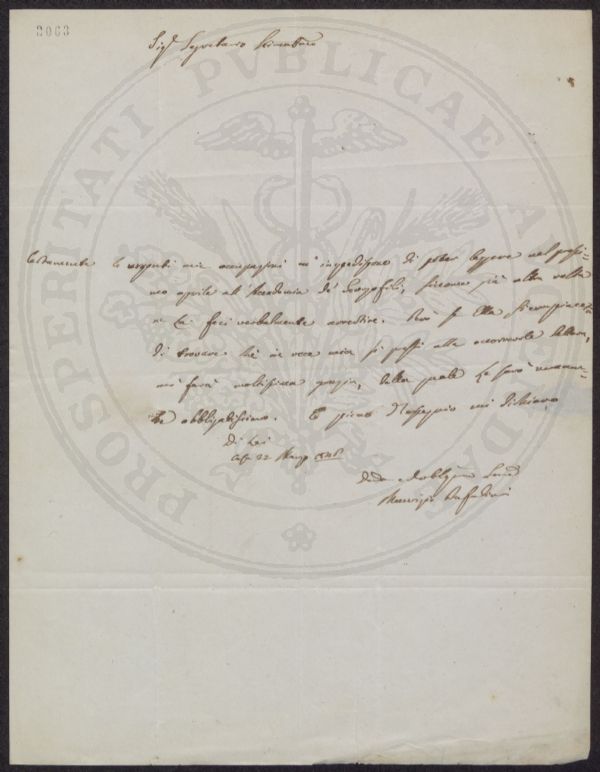 2063
Sig.r Segretario
le urgenti mie occupazioni m'impediscono di poter leggere nel prossi=
mo aprile all'Accademia de' Georgofili, siccome già altra volta
a Lei feci verbalmente avvertire. Però se Ella si compiacerà
di trovare chi in vece mia si presti alla occorrevole lettura,
mi farà moltissima grazia, della quale Le sarò veramen=
te obbligatissimo. E pieno d'ossequio mi dichiaro
Di Lei
22 Marzo
PROSPERITATI PVBLICAE AVGENDAE